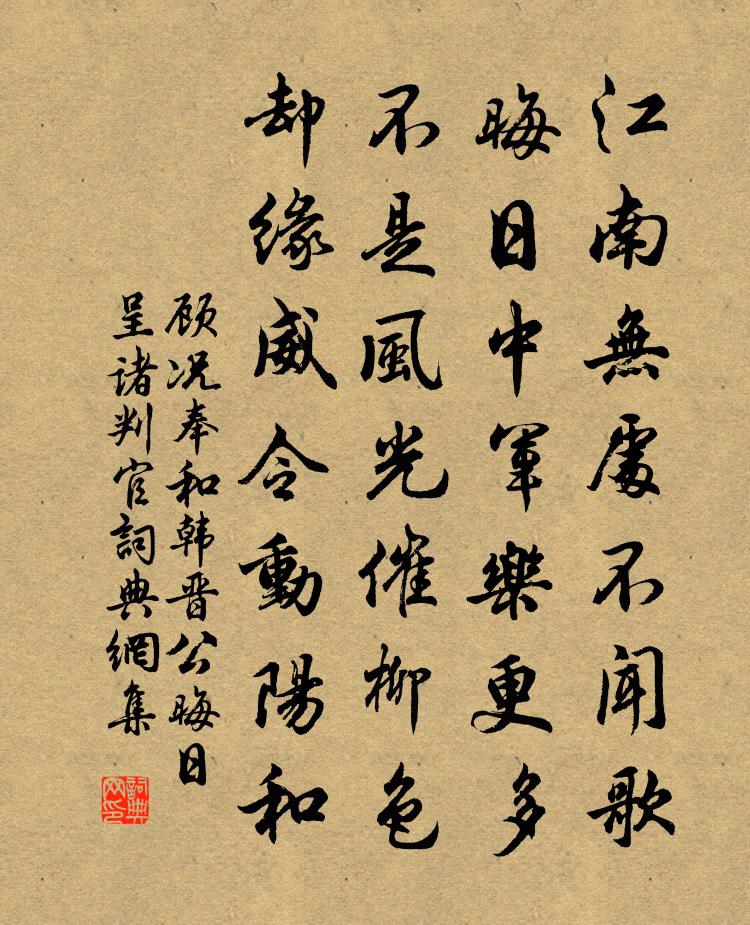 江南無處不聞歌
晦日中軍樂更多
不是風光催柳色
却緣威令動陽和
顾况奉和韩晋公晦日
呈诸判官詞典網集
詞典
网印